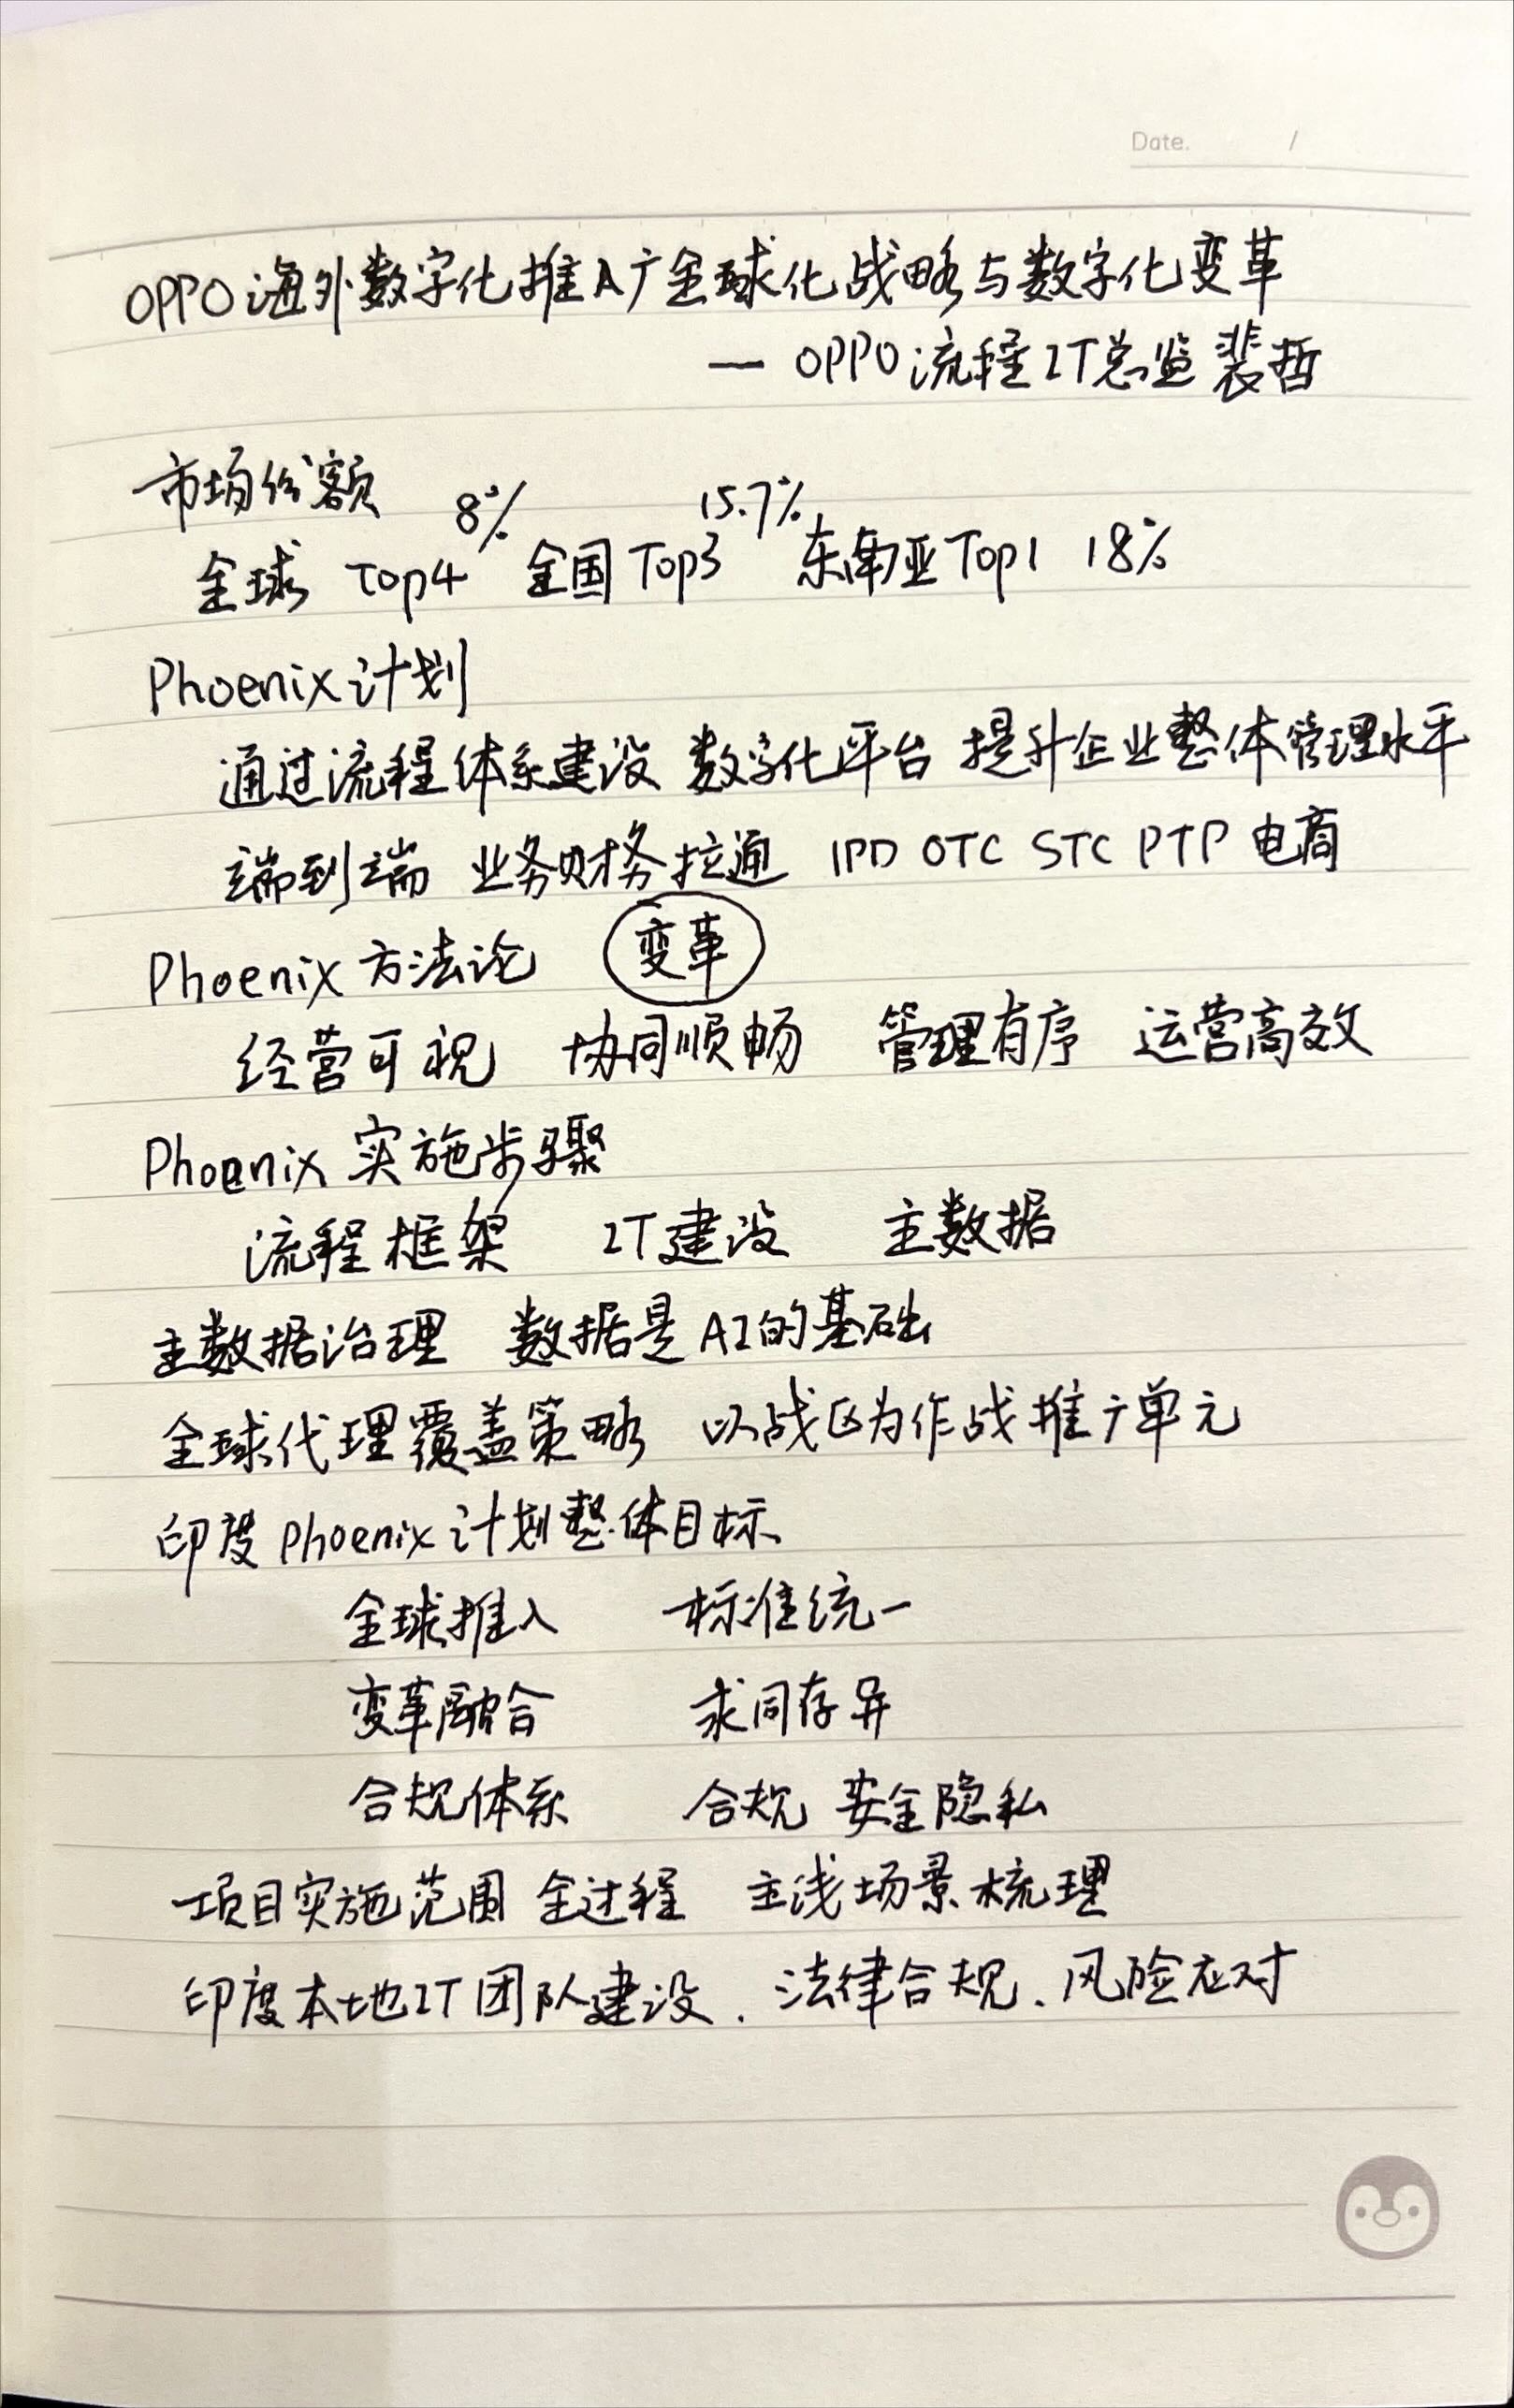 Date. /
OPPO海外数字化推A广全球化战略与数字化变革
— OPPO流程IT总监 裴哲
市场份额 8% 15.7%
全球 Top4 全国Top3 东南亚Top1 18%
Phoenix计划
通过流程体系建设 数字化平台 提升企业整体管理水平
端到端 业务财务拉通 IPD OTC STC PTP 电商
Phoenix方法论 变革
经营可视 协同顺畅 管理有序 运营高效
Phoenix 实施步骤
流程框架 IT建设 主数据
主数据治理 数据是AI的基础
全球代理覆盖策略 以战区为作战推广单元
印度Phoenix计划整体目标
全球推入 标准统一
变革融合 求同存异
合规体系 合规 安全隐私
项目实施范围 全过程 主线场景梳理
印度本地IT团队建设、法律合规、风险应对